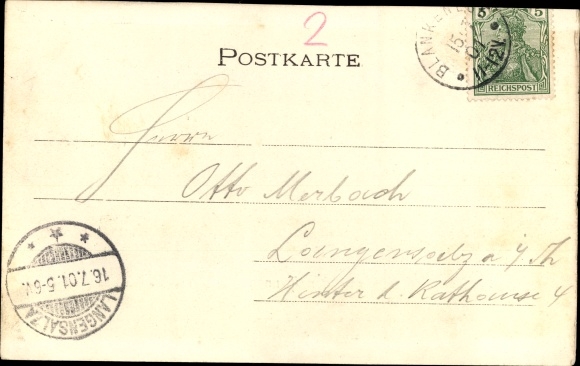 2
POSTKARTE
5 5
REICHSPOST
BLANKEN
15.7
01
11-12V.
Herrn
Otto Merbach
Langensalza i/Th
Hinter d. Rathause 4
16.7.01.5-6V.
LANGENSALZA